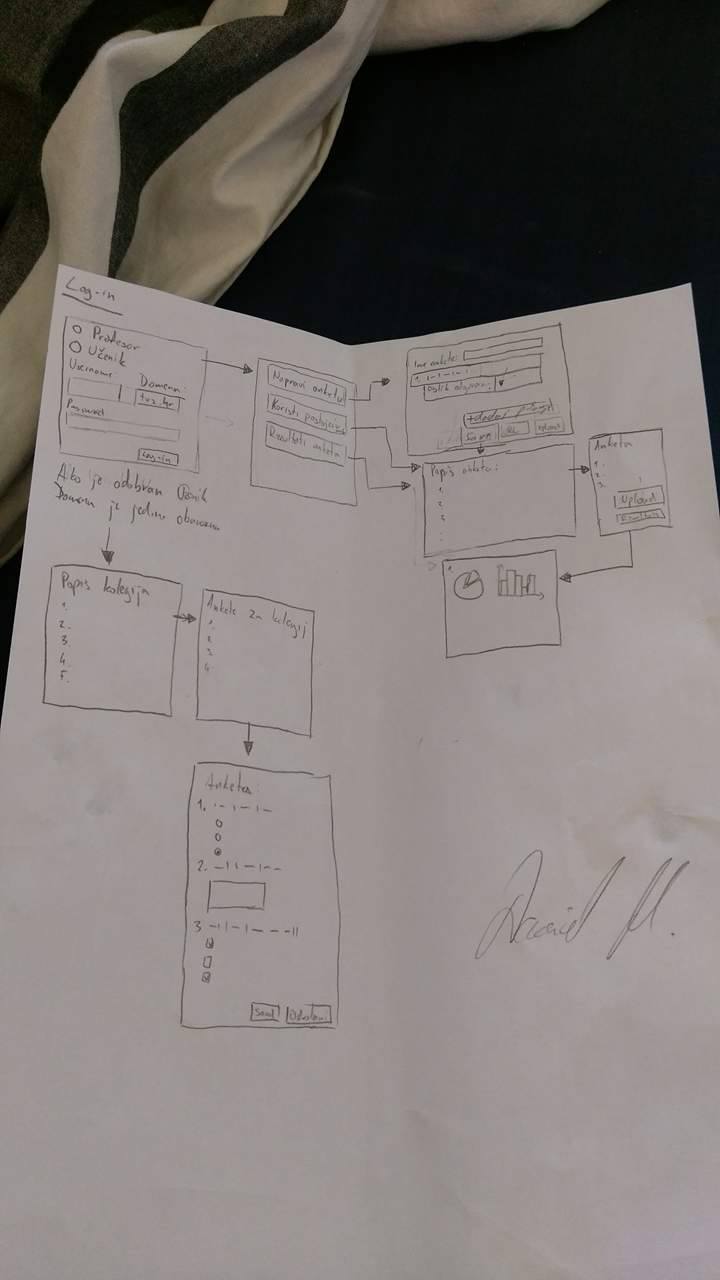 Log-in
Profesor
Učenik
Username
Domena:
tvz.hr
Password
Log-in
Ako je odabran Učenik
Domena je jedino obavezna
Napravi anketu
Koristi postojeću
Rezultati anketa
Ime ankete:
1.
Oblik odgovora:
+dodaj pitanje
Popis anketa:
1
2
3
Anketa
1.
2.
3.
Upload
Rezultati
1.
Popis kolegija
1.
2.
3.
4.
5.
Ankete za kolegij
1.
2
3
4
Anketa:
1.
2.
3
Send
Odustani
Daniel M.